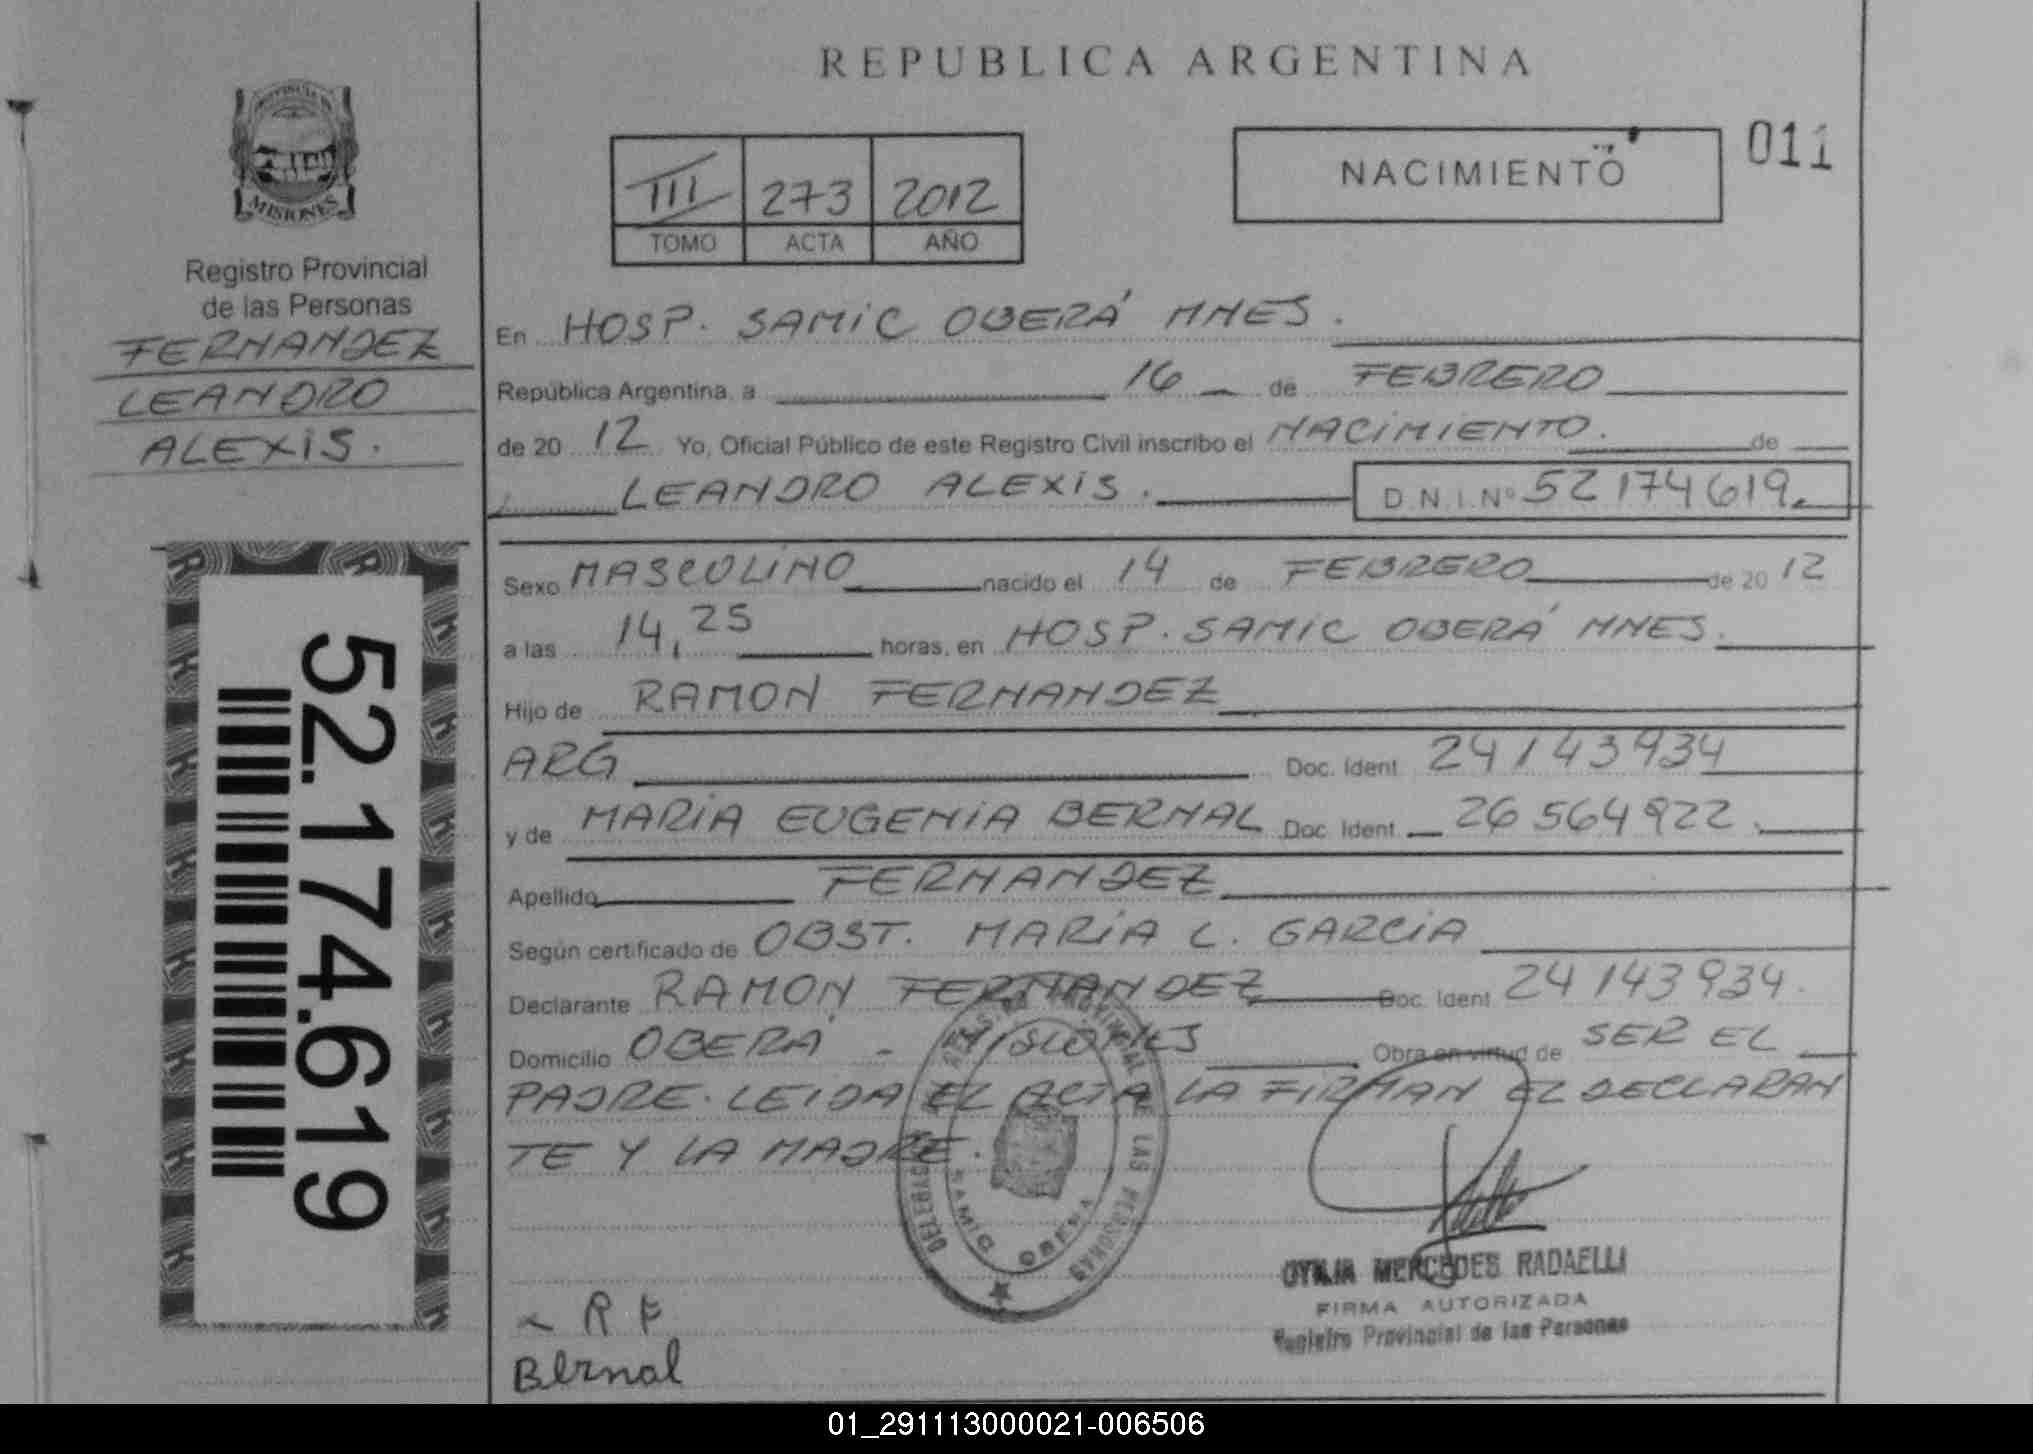 REPUBLICA ARGENTINA
MISIONES
Registro Provincial
de las Personas
FERNANDEZ
LEANDRO
ALEXIS.
52.174.619
III 273 2012
TOMO ACTA AÑO
NACIMIENTO
011
En HOSP. SAMIC OBERÁ MNES.
República Argentina, a 16 de FEBRERO
de 20 12 Yo, Oficial Público de este Registro Civil inscribo el NACIMIENTO. de
LEANDRO ALEXIS. D.N.I.Nº 52174619.
Sexo MASCULINO nacido el 14 de FEBRERO de 20 12
a las 14,25 horas, en HOSP. SAMIC OBERÁ MNES.
Hijo de RAMON FERNANDEZ
ARG Doc. Ident 24143934
y de MARIA EUGENIA BERNAL Doc. Ident 26564922.
Apellido FERNANDEZ
Según certificado de OBST. MARIA L. GARCIA
Declarante RAMON FERNANDEZ Doc. Ident 24143934.
Domicilio OBERÁ - MISIONES Obra en virtud de SER EL
PADRE. LEIDA EL ACTA LA FIRMAN EL DECLARAN
TE Y LA MADRE.
PROVINCIAL DE LAS PERSONAS
SAMIC OBERA
MERCEDES RADAELLI
FIRMA AUTORIZADA
Registro Provincial de las Personas
R F
Bernal
01_291113000021-006506